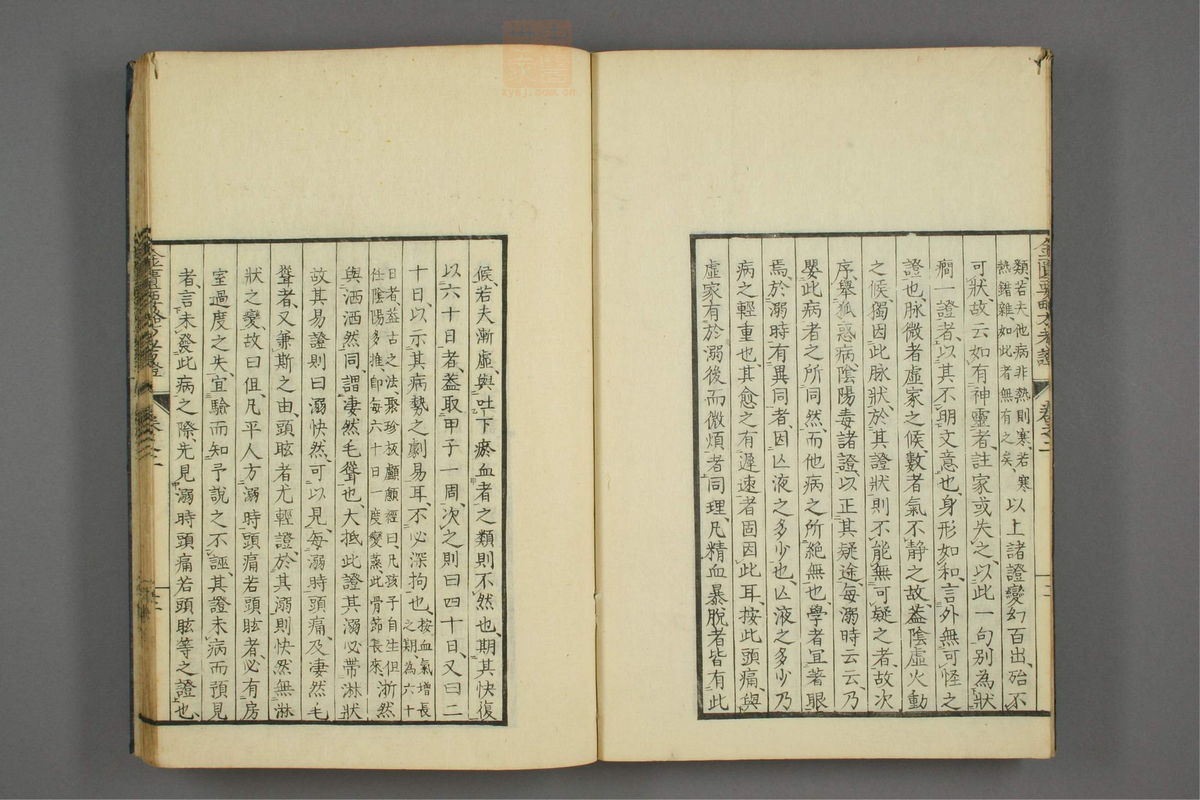 金匱要略方考證　卷之二
類、若夫他病非熱則寒、若寒
熱錯雜、如此者無有之矣、以上諸證變幻百出、殆不
可狀、故云如有神靈者、註家或失之、以此一句別為狀
癇一證者、以其不明文意也、身形如和、言外無可怪之
證也、脉微者虛家之候、數者氣不靜之故、蓋陰虛火動
之候、獨因此脉狀於其證狀則不能無可疑之者、故次
序、舉狐惑病、陰陽毒諸證、以正其疑途、每溺時云云、乃
嬰此病者之所同然、而他病之所絕無也、學者宜著眼
焉、於溺時有異同者、因亡液之多少也、亡液之多少乃
病之輕重也、其愈之有遲速者、固因此耳、按此頭痛、與
虛家有於溺後而微煩者同理、凡精血暴脫者皆有此
候、若夫漸虛、與吐下瘀血者之類則不然也、期其快復
以六十日者、蓋取甲子一周、次之則曰四十日、又曰二
十日、以示其病勢之劇易耳、不必深拘也、按血氣增長
之期、為六十
日者、蓋古之法、聚珍板顱顖經曰、凡孩子自生但
任陰陽多推、即每六十日一度變蒸、此骨節長來、淅然
與洒洒然同、謂凄然毛聳也、大抵此證其溺必帶淋狀
故其易證則曰溺快然、可以見、每溺時頭痛、及凄然毛
聳者、又兼斯之由、頭眩者尤輕證、於其溺則快然無淋
狀之變、故曰但、凡平人方溺時頭痛若頭眩者、必有房
室過度之失、宜驗而知予說之不誣、其證未病而預見
者、言未發此病之際先見溺時頭痛若頭眩等之證也、
金匱要略方考證　卷之二